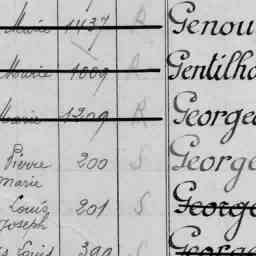 Marie 1437 R Genou
Marie 1009 R Gentilho
Marie 1209 R George
Pierre 200 S George
Marie
Louis 201 S George
Joseph
Louis 390 George